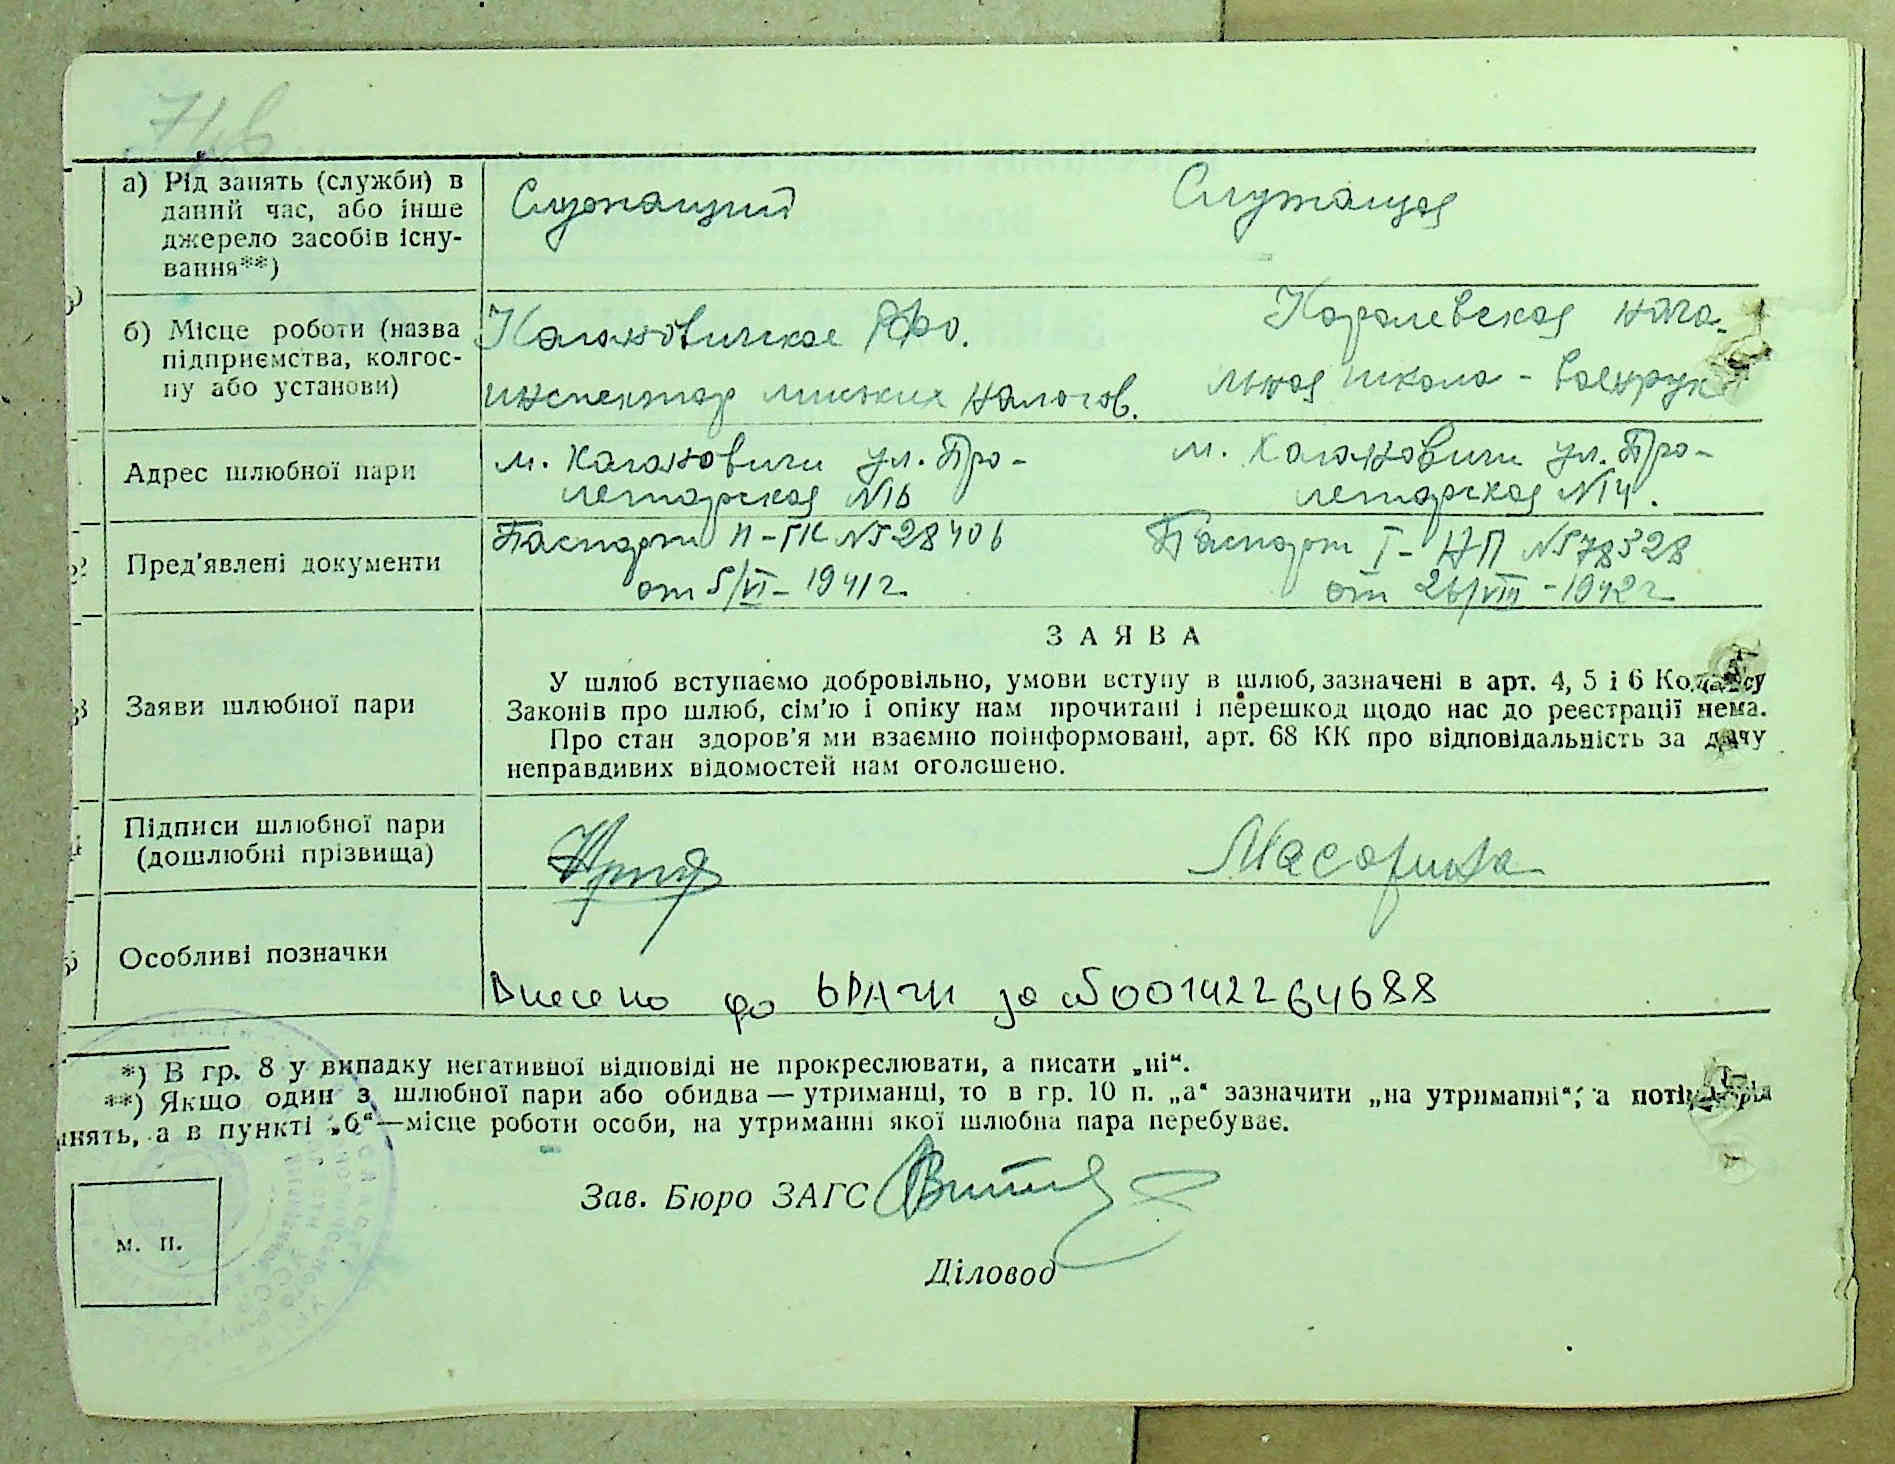 а) Рід занять (служби) в
даний час, або інше
джерело засобів існу-
вання**)
Служащий
Служащая
б) Місце роботи (назва
підприємства, колгос-
пу або установи)
Кагановичское РФО.
инспектор миських налогов.
Каралевская нача-
льная школа - военрук
Адрес шлюбної пари
м. Кагановичи ул. Про-
летарская №16
м. Кагановичи ул. Про-
летарская №14.
Пред'явлені документи
Паспорт II-ГК №528406
от 5/VI - 1941 г.
Паспорт I - НП №578528
от 26/VIII - 1942 г.
Заяви шлюбної пари
ЗАЯВА
У шлюб вступаємо добровільно, умови вступу в шлюб, зазначені в арт. 4, 5 і 6 Кодексу
Законів про шлюб, сім'ю і опіку нам прочитані і перешкод щодо нас до реєстрації нема.
Про стан здоров'я ми взаємно поінформовані, арт. 68 КК про відповідальність за дачу
неправдивих відомостей нам оголошено.
Підписи шлюбної пари
(дошлюбні прізвища)
Особливі позначки
Внесено до ДРАЦС за №00142264688
*) В гр. 8 у випадку негативної відповіді не прокреслювати, а писати „ні“.
**) Якщо один з шлюбної пари або обидва — утриманці, то в гр. 10 п. „а“ зазначити „на утриманні“, а потім рід
занять, а в пункті „б“—місце роботи особи, на утриманні якої шлюбна пара перебуває.
Зав. Бюро ЗАГС
м. п.
Діловод